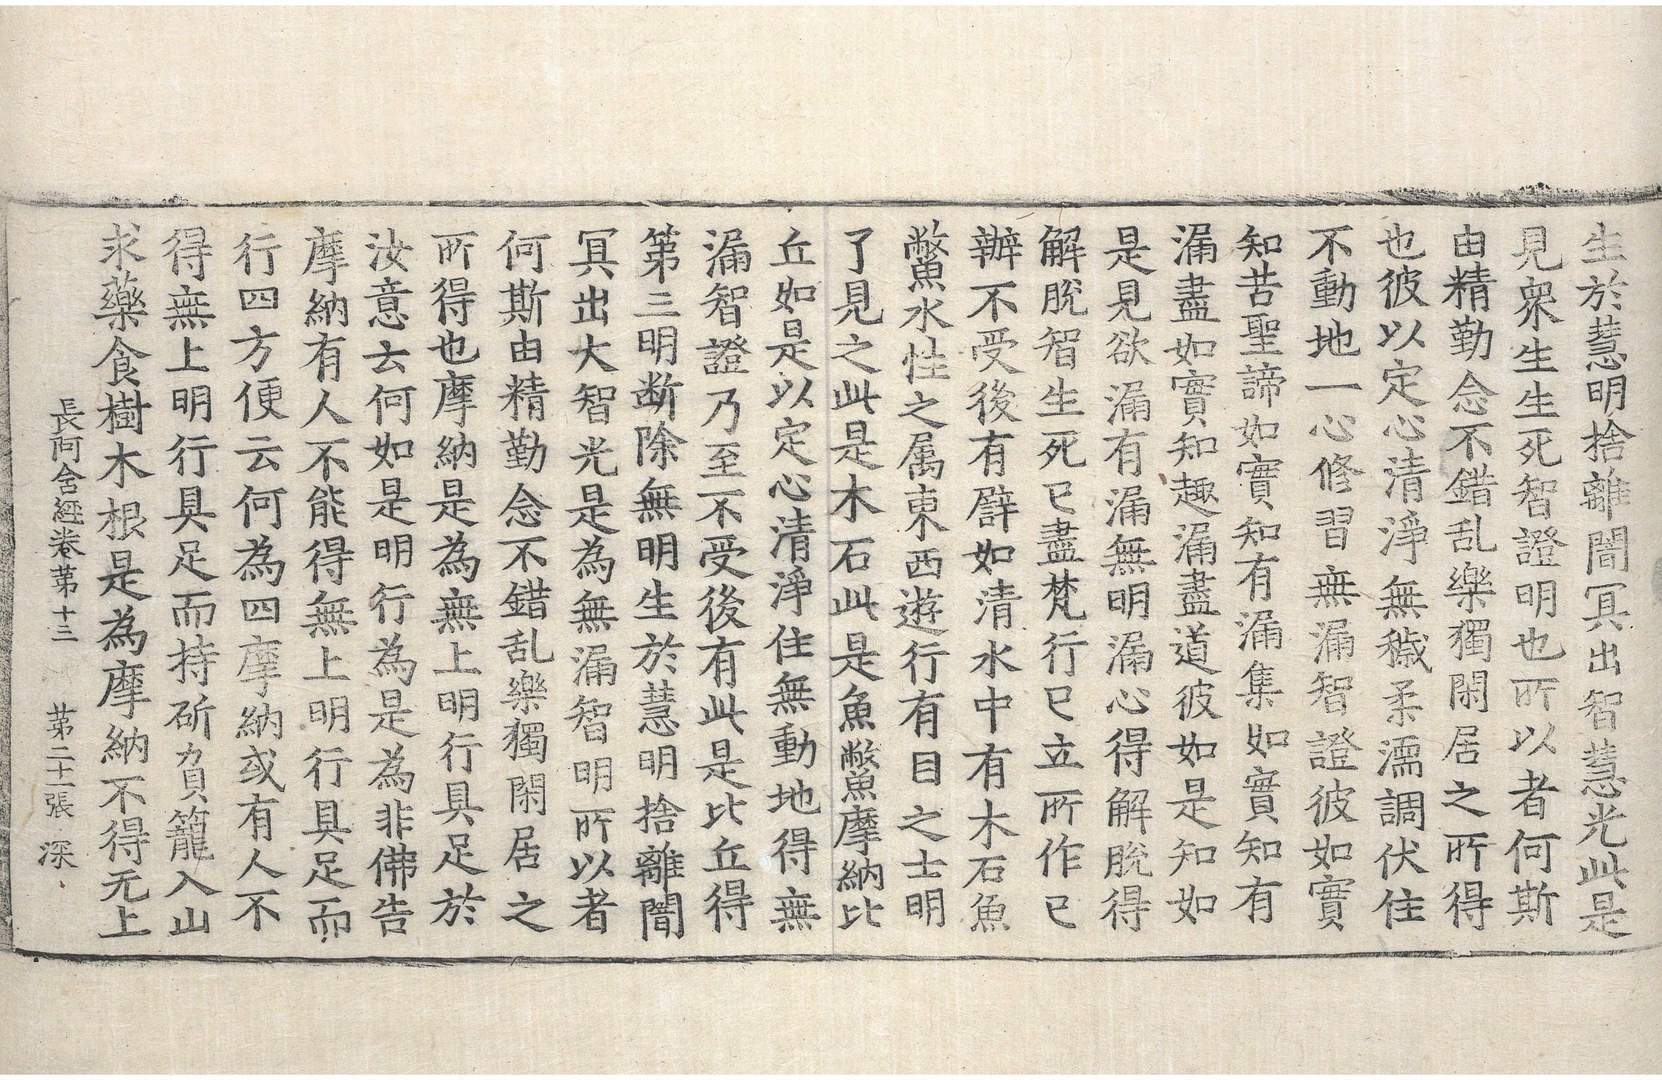 生於慧明捨離闇冥出智慧光此是
見衆生生死智證明也所以者何斯
由精勤念不錯乱樂獨閑居之所得
也彼以定心清淨無穢柔濡調伏住
不動地一心修習無漏智證彼如實
知苦聖諦如實知有漏集如實知有
漏盡如實知趣漏盡道彼如是知如
是見欲漏有漏無明漏心得解脫得
解脫智生死已盡梵行已立所作已
辦不受後有譬如清水中有木石魚
鼈水性之属東西遊行有目之士明
了見之此是木石此是魚鼈摩納比
丘如是以定心清淨住無動地得無
漏智證乃至不受後有此是比丘得
第三明断除無明生於慧明捨離闇
冥出大智光是為無漏智明所以者
何斯由精勤念不錯乱樂獨閑居之
所得也摩納是為無上明行具足於
汝意云何如是明行為是為非佛告
摩納有人不能得無上明行具足而
行四方便云何為四摩納或有人不
得無上明行具足而持斫負籠入山
求藥食樹木根是為摩納不得无上
長阿含經卷苐十三 苐二十一張 深